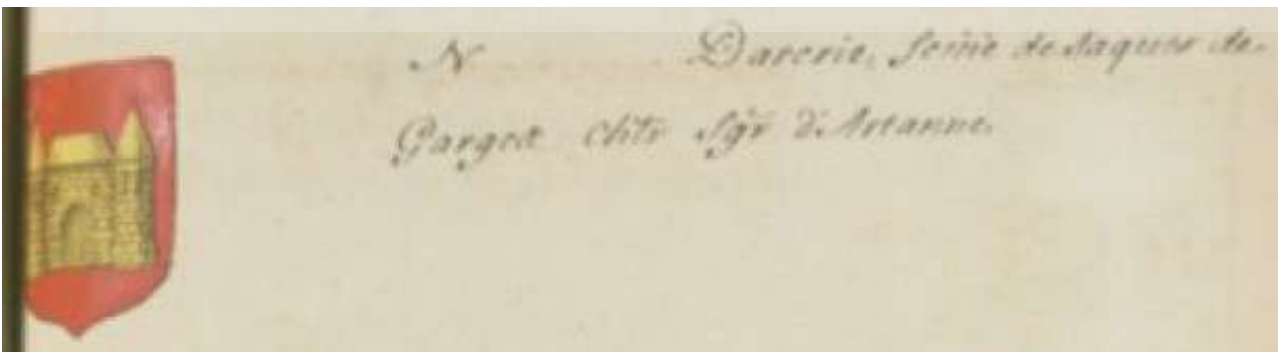 N Darerie, femme de Jaques de
Garget chlr Sgr d'Artanne.